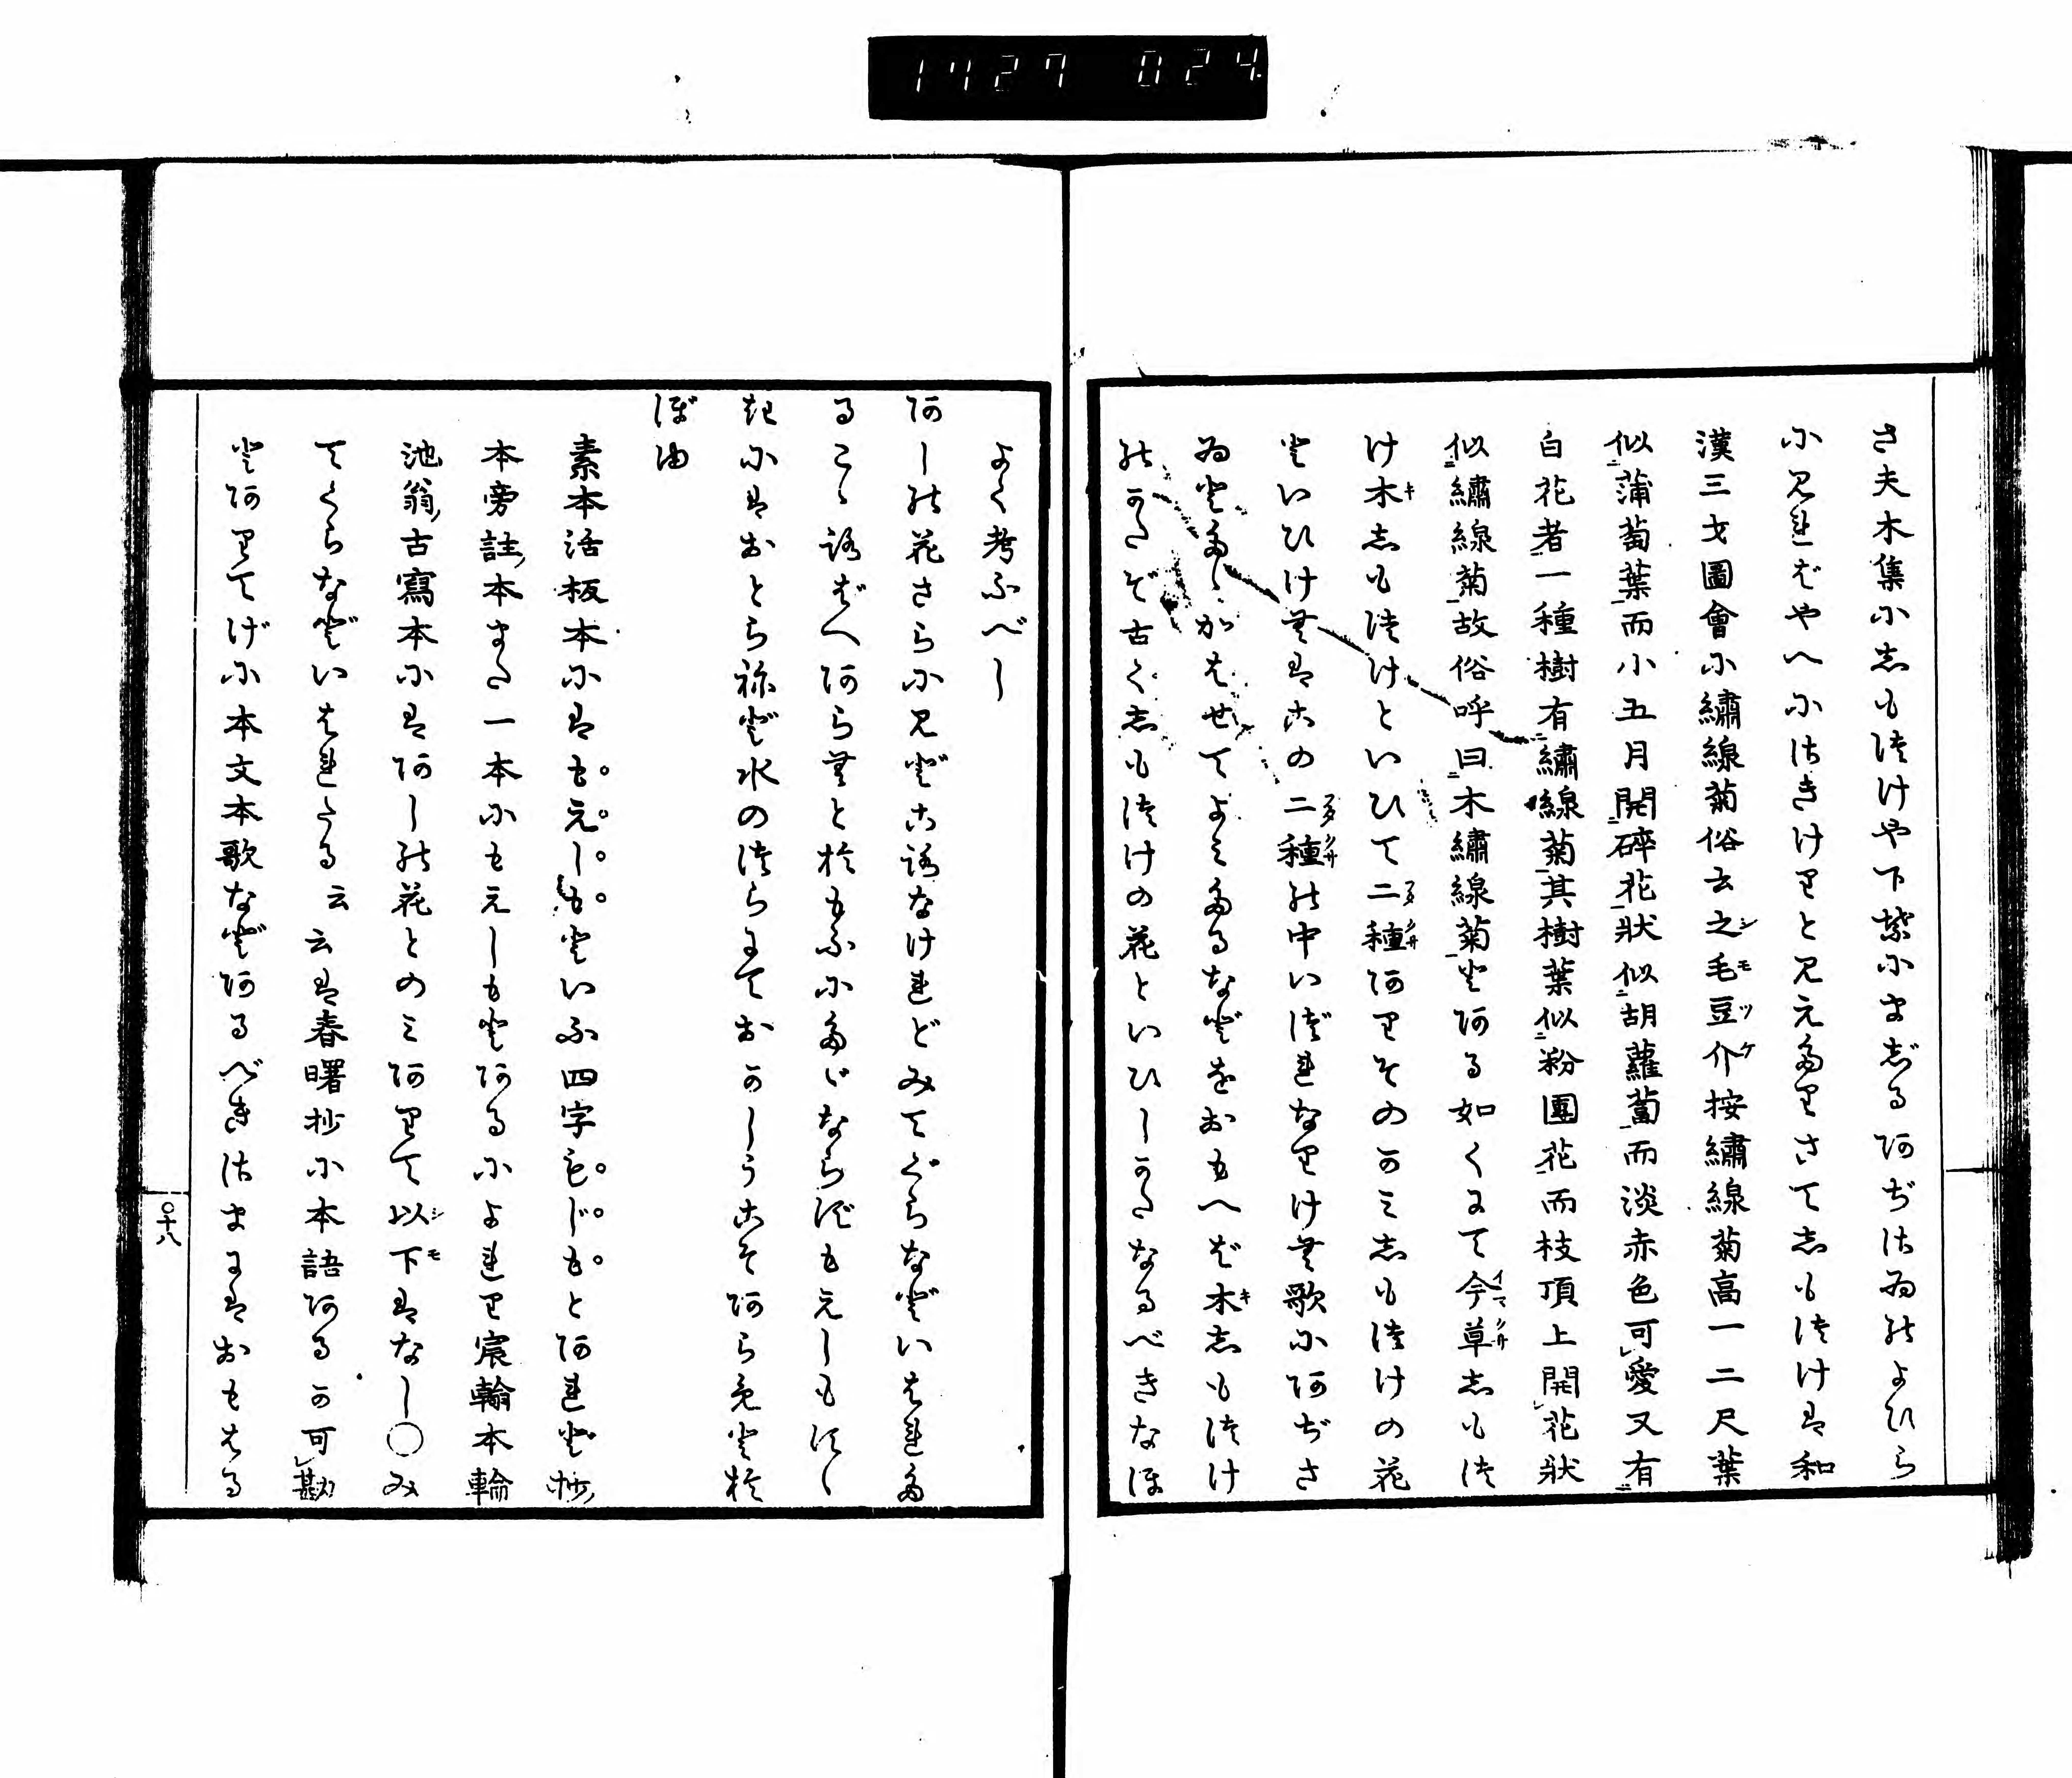 1727 024
さ夫木集に志も徒けや下紫にまじるあぢさゐのよひら
に見ればやへにさきけりと見え多りさて志も徒けは和
漢三才圖會に繡線菊俗云之毛豆介按繡線菊高一二尺葉
似蒲萄葉而小五月開碎花狀似胡蘿蔔而淡赤色可愛又有
白花者一種樹有繡線菊其樹葉似粉團花而枝頂上開花狀
似繡線菊故俗呼曰木繡線菊とある如くにて今草志も徒
け木志も徒けといひて二種ありそのかみ志も徒けの花
といひけむはこの二種の中いづれなりけむ歌にあぢさ
ゐと多ゝかはせてよみ多るなどをおもへば木志も徒け
のかたぞ古く志も徒けの花といひしかたなるべきなほ
よく考ふべし
あしの花さらに見どころなけれどみてぐらなどいはれ多
るこゝろばへあらむとおもふに多ゞならずもえしもすゝ
きにはおとらねど水のつらにておかしうこそあらめとお
ぼゆ
素本活板本にはも元しもといふ四字もじもとあれど抄
本旁註本また一本にもえしもとあるによれり宸輪本輪
池翁古寫本にはあしの花とのみありて以下はなし〇み
てぐらなどいはれたる云云は春曙抄に本語あるか可勘
とありてげに本文本歌などあるべきさまにはおもはる
〇十八